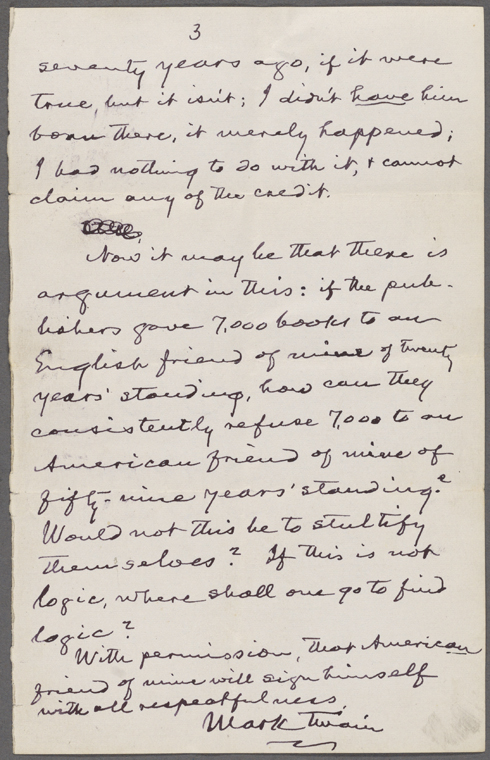 3
seventy years ago, if it were
true, but it isn't; I didn't have him
born there, it merely happened;
I had nothing to do with it, & cannot
claim any of the credit.
Now it may be that there is
argument in this: if the pub-
lishers gave 7,000 books to an
English friend of mine of twenty
years' standing, how can they
consistently refuse 7,000 to an
American friend of mine of
fifty-nine years' standing?
Would not this be to stultify
themselves? If this is not
logic, where shall one go to find
logic?
With permission, that American
friend of mine will sign himself
with all respectfulness,
Mark Twain